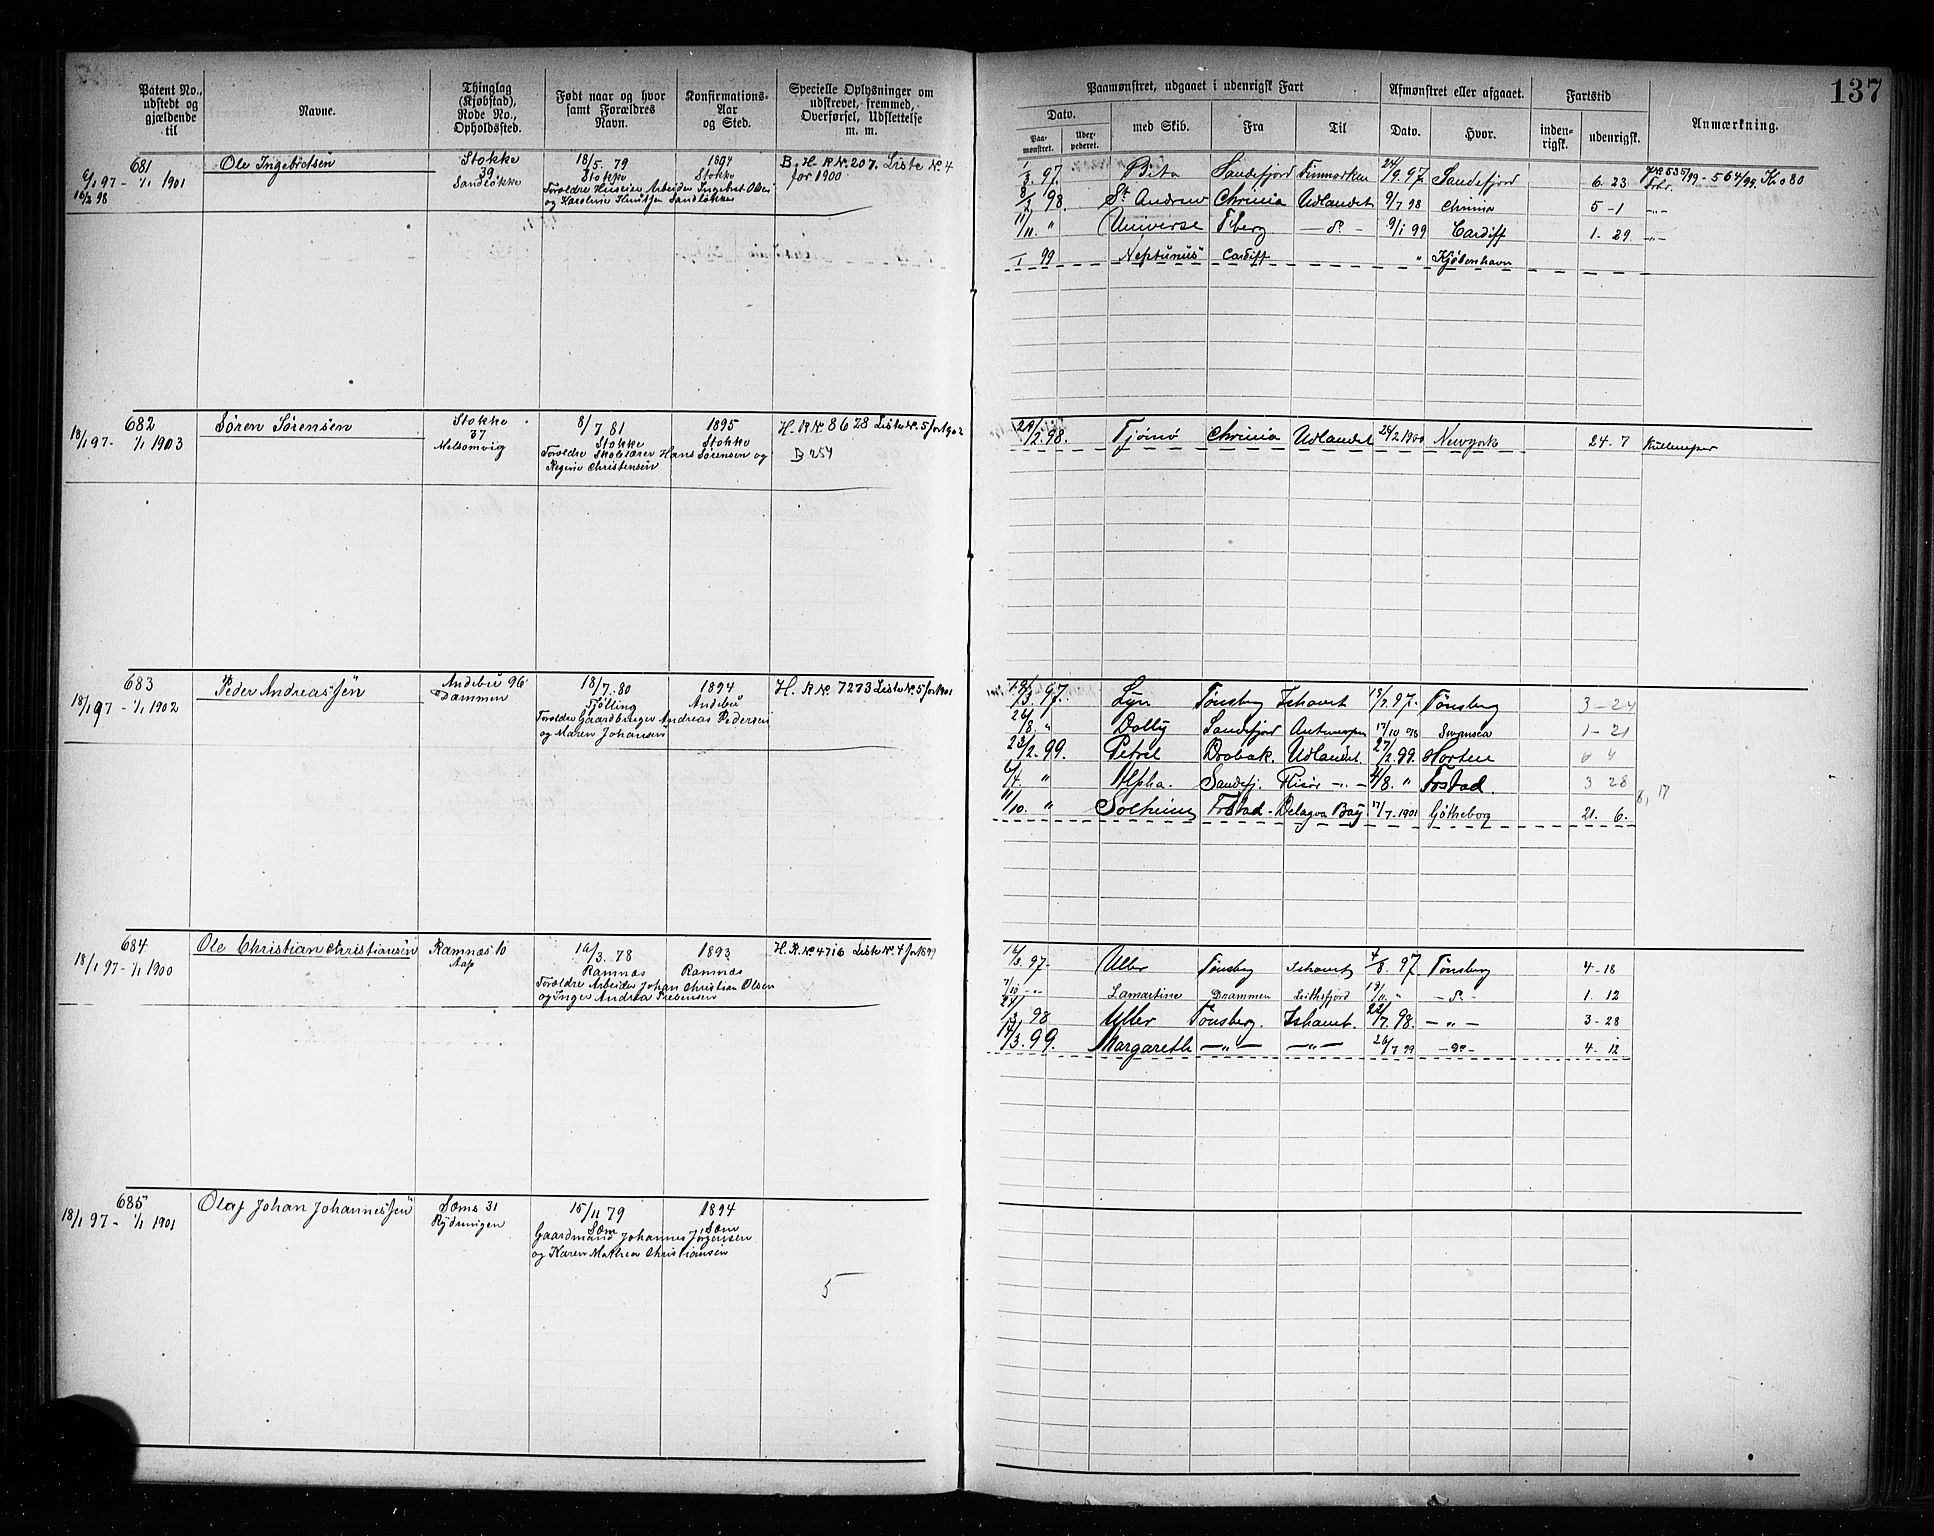 137
Patent No., udstedt og gjældende til
Navne.
Thinglag (Kjøbstad), Rode No., Opholdssted.
Født naar og hvor samt Forældres Navn.
Konfirmations-Aar og Sted.
Specielle Oplysninger om udskrevet, fremmed, Overførsel, Udslettelse m. m.
Paamønstret, udgaaet i udenrigsk Fart
Afmønstret eller afgaaet.
Fartstid
Anmærkning.
Dato.
Paamønstret.
Uderpederet.
med Skib.
Fra
Til
Dato.
Hvor.
indenrigsk.
udenrigsk.
681
6/1 97 - 1/1 1901
16/2 98
Ole Ingebretsen
Stokke
39
Sandsløkke
18/5. 79
Stokke
Forældre Huseier Arbeider Ingebret Olsen
og Karoline Knutsen Sandløkken
1894
Stokke
B. H. R No 207. Liste No 4
for 1900
1/3. 97. Beta Sandefjord Finmarken 24/9. 97. Sandefjord 6. 23
8/2 98. St Andrew Chrinia Udlandet 9/7 98 Chrinia 5 - 1 -"-
11/11. " Universe Tberg - d. - 9/1 99 Cardiff 1. 29. -"-
1 99 Neptunus Cardiff " Kjøbenhavn
682
18/1 97 - 1/1 1903
Søren Sørensen
Stokke
37
Melsomvig
8/7 81
Stokke
Forældre Skolelærer Hans Sørensen og
Regine Christensen
1895
Stokke
H. R No 8628 Liste No. 5 for 1902
B 254
24/2. 98. Tjømø Chrinia Udlandet 24/2 1900 Newyork 24 - 7
683
18/1 97 - 1/1 1902
Peder Andreassen
Andebu 96
Dammen
18/7. 80
Tjølling
Forældre Gaardbruger Andreas Pedersen
og Maren Johansen
1894
Andebu
H. R No. 7273 Liste No. 5 for 1901
/3. 97. Lyn Tønsberg Ishavet 18/7. 97. Tønsberg 3 - 24
26/8. " Dolly Sandefjord Antwerpen 17/10 Swansea 1 - 21
23/2. 99. Petrel Drøbak. Udlandet 27/2. 99. Horten 4
6/4 " Alpha. Sandefj. Risør -"- 4/8. " Frstad. 3 28
11/10. " Solheim Frstad - Delagoa Bay 17/7. 1901 Gøtheborg 21. 6.
8, 17
684
18/1 97 - 1/1 1900
Ole Christian Christiansen
Ramnæs 10
Aap
16/3. 78
Ramnæs
Forældre Arbeider Johan Christian Olsen
og Inger Andrea Prebensen
1893
Ramnæs
H. R. No 4716 Liste No. 4 for 1899
16/3. 97 - Uller Tønsberg Ishavet 4/8. 97 Tønsberg 4 - 18
7/10 -"- Lamartine Drammen 19/11 " - d. - 1. 12
/3 98 Uller Tønsberg. Ishavet. 22/7. 98. - " - 3 - 28
14/3. 99. Margareth - " - - " - 26/7 99 - do - 4 - 12
685
18/1 97 - 1/1 1901
Olaf Johan Johannessen
Sæms 31
Rydningen
15/11 79
Sæm
Gaardmand Johannes Jørgensen
og Karen Mathea Christiansen
1894
Sæm
5